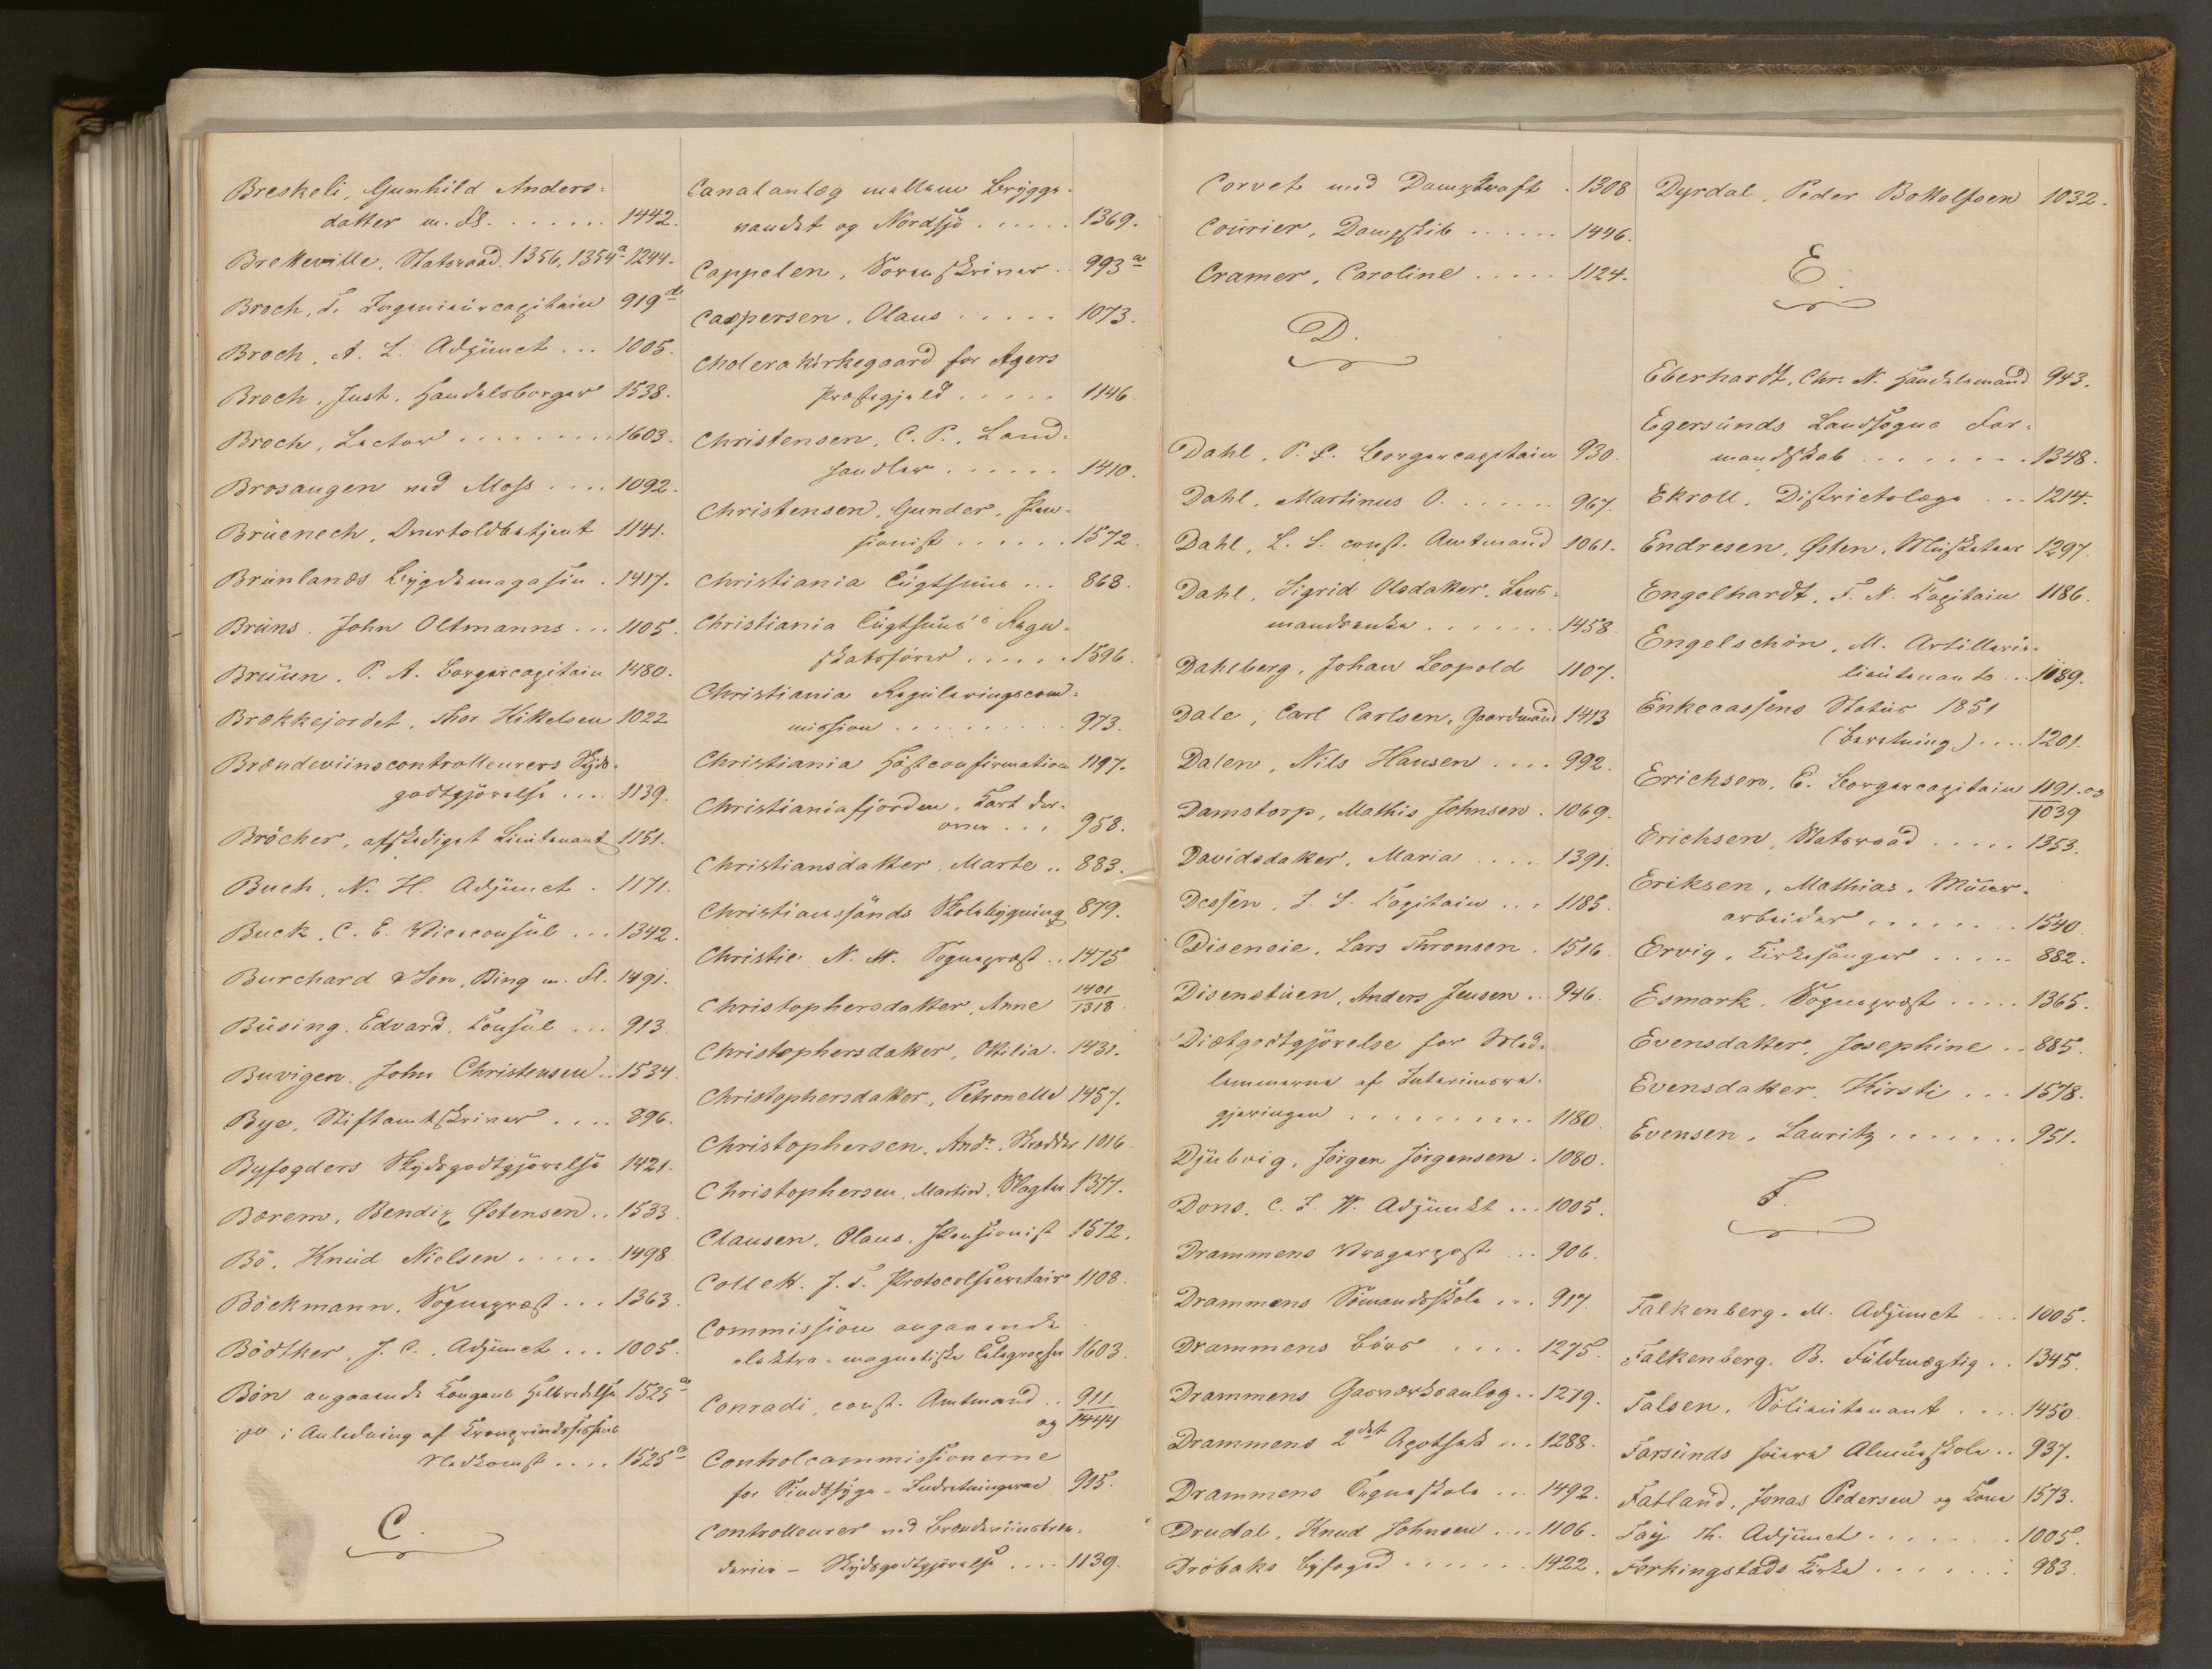 Breskeli, Gunhild Anders=
datter m. fl. . . . . . . 1442.
Bretteville, Statsraad. 1356, 1354a 1244.
Broch, T. Ingenieurcapitain 919d
Broch, A. L. Adjunct . . . 1005.
Broch, Just. Handelsborger 1538.
Broch, Lector . . . . . . . . 1603.
Brosaugen ved Moss . . . . 1092.
Brüenech, Overtoldbetjent 1141.
Brunlanæs Bygdemagasin . 1417.
Bruns. John Oltmanns . . . 1105.
Bruun, P. A. Borgercapitain 1480.
Brækkejordet, Thor Kittelsen 1022
Brændeviinscontrolleurers Skyds=
godtgjörelse . . . 1139.
Bröcher, afskediget Lieutenant 1151.
Buch, N. H. Adjunct . 1171.
Buck, C. E. Viceconsul . . . 1342.
Burchard & Sön, Bing m. fl. 1491.
Büsing. Edvard, Consul . . . 913.
Buvigen. John Christensen . . 1534.
Bye, Stiftamtskriver . . . . 896.
Byfogders Skydsgodtgjörelse 1421.
Bærem, Bendix Østensen . . 1533.
Bö. Knud Nielsen . . . . . 1498
Böckmann, Sognepræst . . . 1363.
Bödtker, J. C. Adjunct . . . 1005.
Bön angaaende Kongens Helbredelse 1525a
" i Anledning af Kronprindsessens
Nedkomst . . . . 1525c
C.
Canalanlæg mellem Brygge=
vandet og Nordsjö . . . . . . 1369.
Cappelen, Sorenskriver . . 993a
Caspersen, Olaus . . . . . 1073.
Cholerakirkegaard for Agers
Præstegjeld . . . . . 1146.
Christensen, C. P., Land=
handler . . . . . . 1410.
Christensen, Gunder, Pen=
sionist . . . . . . 1572.
Christiania Tugthuus . . . 868.
Christiania Tugthuus's Regn=
skabsförer . . . . . 1596.
Christiania Reguleringscom=
mission . . . . . . . . . 973.
Christiania Höstconfirmation 1197.
Christianiafjorden, Kart der=
over . . . 958.
Christiansdatter, Marte . . 883.
Christianssands Skolebygning 879.
Christie N. M. Sognepræst . . 1475
Christophersdatter, Anne 1401
1318.
Christophersdatter, Ottilia . 1431.
Christophersdatter, Petronelle 1457.
Christophersen, Andr. Skrædder 1016.
Christophersen, Martin, Slagter 1377.
Clausen, Olaus, Pensionist 1572.
Collett. J. C. Protocolsecretair 1108.
Commission angaaende
elektro-magnetiske Telegrapher 1603.
Conradi, const. Amtmand . . 911.
og 1444
Controlcommissionerne
for Sindssyge-Indretningerne 915.
Controlleurer ved Brændeviinsbræn=
derier - Skydsgodtgjörelse . . . . 1139.
Corvet med Dampkraft . 1308
Courier, Dampskib . . . . . . 1496.
Cramer, Caroline . . . . . 1124.
D.
Dahl, P. C. Borgercapitain 930.
Dahl, Martinus O. . . . . . . 967.
Dahl, L. S. const. Amtmand 1061.
Dahl, Sigrid Olsdatter, Lens=
mandsenke . . . . . . . 1458.
Dahlberg, Johan Leopold 1107.
Dale, Carl Carlsen, Gaardmand 1413
Dalen, Nils Hansen . . . . 992.
Damstorp, Mathis Johnsen . 1069.
Davidsdatter, Maria . . . . 1391.
Dessen, J. S. Capitain . . . 1185.
Diseneie, Lars Thronsen . 1516.
Disenstuen, Anders Jensen . . 946.
Diætgodtgjörelse for Med=
lemmerne af Interimsre=
gjeringen . . . . . . . . . 1180.
Djubvig, Jörgen Jörgensen . 1080.
Dons, C. J. W. Adjunkt . . . 1005.
Drammens Vragerpost . . . 906.
Drammens Sömandsskole . . . 917.
Drammens Börs . . . . 1275.
Drammens Gasværksanlæg . . 1279.
Drammens 2det Apothek . . . 1288.
Drammens Tegneskole . . . 1492.
Drudal, Knud Johnsen . . . . 1106.
Dröbaks Byfoged . . . . . . . 1422.
Dyrdal, Peder Bottolfsen 1032.
E.
Eberhardt, Chr. N. Handelsmand 943.
Egersunds Landsogns For=
mandskab . . . . . . . . 1348.
Ekroll, Districtslæge . . . 1214.
Endresen, Østen, Musketeer 1297.
Engelhardt, F. N. Capitain 1186.
Engelschön, M. Artillerie=
lieutenant . . . 1189.
Enkecassens Status 1851
(Beretning) . . . . 1201.
Erichsen, C. Borgercapitain 1191. og
1039
Erichsen, Statsraad . . . . . 1353.
Eriksen, Mathias, Muur=
arbeider . . . . . . . . 1540.
Ervig, Kirkesanger . . . . . 882.
Esmark, Sognepræst . . . . . 1365.
Evensdatter, Josephine . . 885.
Evensdatter, Kirsti . . . 1578.
Evensen, Lauritz . . . . . . . 951.
F.
Falkenberg, M. Adjunct . . . 1005.
Falkenberg. B. Fuldmægtig . . 1345.
Falsen, Sölieutenant . . . . 1450.
Farsunds høiere Almueskole . . 937.
Fatland, Jonas Pedersen og Kone 1573.
Fay Th. Adjunct . . . . . . . . 1005.
Ferkingstads Kirke . . . . . . . 983.